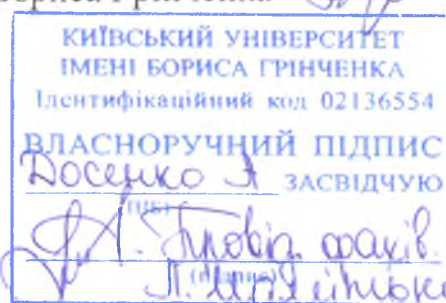 Бориса Грінченка
КИЇВСЬКИЙ УНІВЕРСИТЕТ
ІМЕНІ БОРИСА ГРІНЧЕНКА
Ідентифікаційний код 02136554
ВЛАСНОРУЧНИЙ ПІДПИС
Досенко А ЗАСВІДЧУЮ
(ПІБ)
Провідн. фахів.
(підпис)